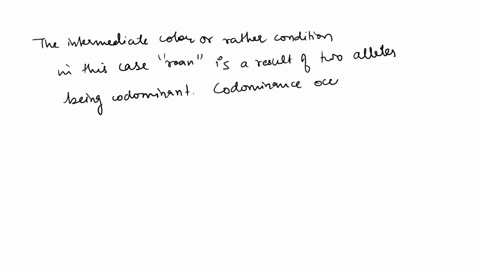 The intermediate color or rather condition
in this case "roan" is a result of two alleles
being codominant. Codominance occ